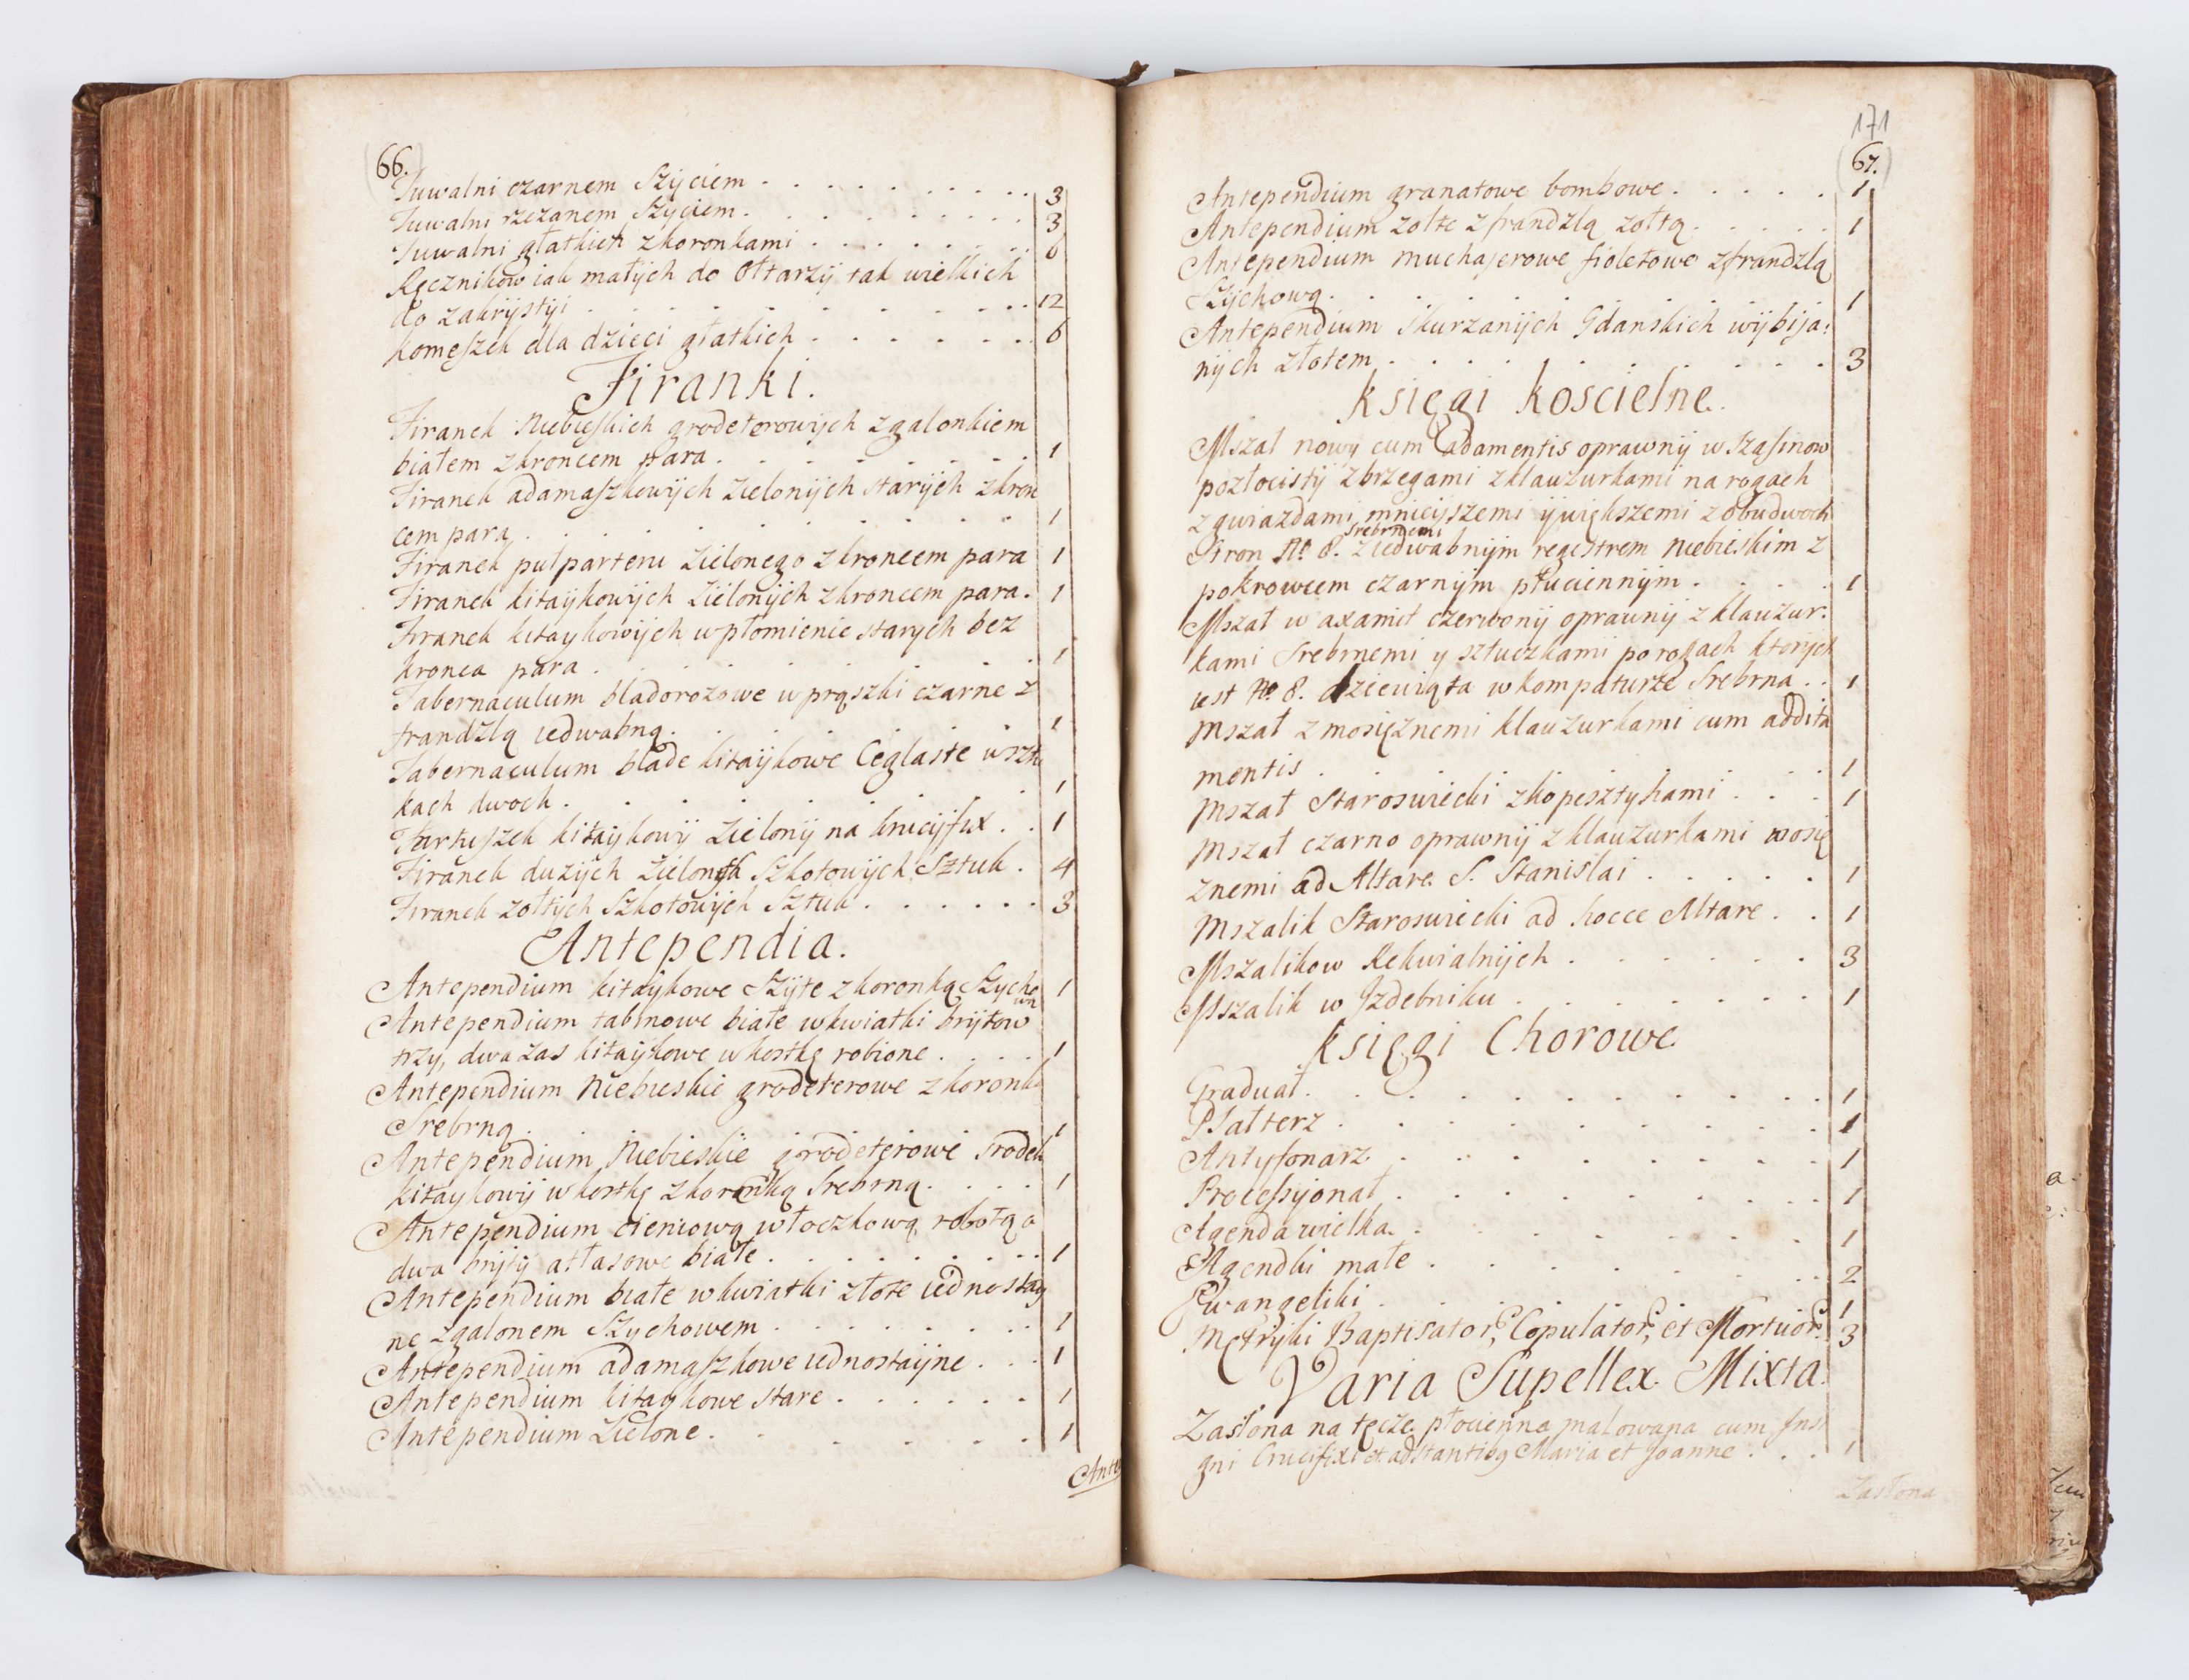 66.
Tuwalni czarnem Szyciem . . . . . . . . . . 3
Tuwalni rzezanem Szyciem . . . . . . . . . 3
Tuwalni głatkich z koronkami . . . . . . . . 6
Ręcznikow iak małych do Ołtarzy tak wielkich
do zakrystyi . . . . . . . . . . 12
komeszek dla dzieci głatkich . . . . . . 6
Firanki.
Firanek Niebieskich grodeterowych z galonkiem
białem z kroncem para . . . . . . . 1
Firanek adamaszkowych zielonych starych z kron
cem para . . . . . . . . 1
Firanek pułparteru zielonego z kroncem para 1
Firanek kitaykowych zielonych z kroncem para . 1
Firanek kitaykowych w płomienie starych bez
kronca para . . . . . . . 1
Tabernaculum bladorozowe w prąszki czarne z
frandzlą iedwabną . . . . . . 1
Tabernaculum blade kitaykowe Ceglaste w sztu
kach dwoch . . . . . . . . 1
Fartuszek kitaykowy zielony na krucyfix . . 1
Firanek duzych zielonych Szkotowych Sztuk . 4
Firanek zołtych Szkotowych Sztuk . . . . . . 3
Antependia.
Antependium kitaykowe Szyte z koronką Szycho
wą 1
Antependium tabinowe białe w kwiatki brytow
trzy, dwa zas kitaykowe w kostkę robione . . . . 1
Antependium Niebieskie grodeterowe z koronką
Srebrną . 1
Antependium Niebieskie grodeterowe srodek
kitaykowy w kostkę z koronką Srebrną . . . . 1
Antependium cieniową włoczkową robotą o
dwa bryty attasowe białe . . . . . . . . . 1
Antependium białe w kwiatki złote iednostay
ne z galonem Szychowem . . . . . . . 1
Antependium adamaszkowe iednostayne . . . 1
Antependium kitaykowe stare . . . . . . 1
Antependium Zielone . . . . . . . 1
Ante
171
67.
Antependium granatowe bombowe . . . . . 1
Antependium zołte z frandzlą zołtą . . . . . 1
Antependium muchajerowe fioletowe z frandzlą
Szychową . . . . . . . . . 1
Antependium Skurzanych Gdanskich wybija:
nych złotem . . . . . . . . . 3
Księgi Koscielne.
Mszał nowy cum adamentis oprawny w Szafinow
pozłocisty z brzegami z klauzurkami na rogach
z gwiazdami mnieyszemi y większemi z obudwoch
Srebrnemi
Stron No 8. z iedwabnym regestrem Niebieskim z
pokrowcem czarnym płuciennym . . . . 1
Mszał w axamit czerwony oprawny z klauzur:
kami Srebrnemi y sztuczkami po rogach ktorych
iest No 8. dziewiąta w kompaturze Srebrna . . 1
Mszał z mosięznemi klauzurkami cum addita
mentis . . . . . . . . . 1
Mszał Staroswiecki z kopersztykami . . . 1
Mszał czarno oprawny z klauzurkami mosię
znemi ad Altare S. Stanislai . . . . . 1
Mszalik Staroswiecki ad hocce Altare . . 1
Mszalikow Rekwialnych . . . . . . 3
Mszalik w Jzdebniku . . . . . . . 1
Księgi Chorowe
Graduał . . . . . . . . . . 1
Psałterz . . . . . . . . . 1
Antyfonarz . . . . . . . . 1
Processyjonał . . . . . . . . 1
Agenda wielka . . . . . . . 1
Agendki małe . . . . . . . . 2
Ewangeliki . 1
Metryki Baptisator, Copulator, et Mortuor. 3
Varia Supellex Mixta.
Zasłona na tęcze płocienna malowana cum Insi
gni Crucifixi et adstantibg Maria et Joanne . . . 1
Zasłona